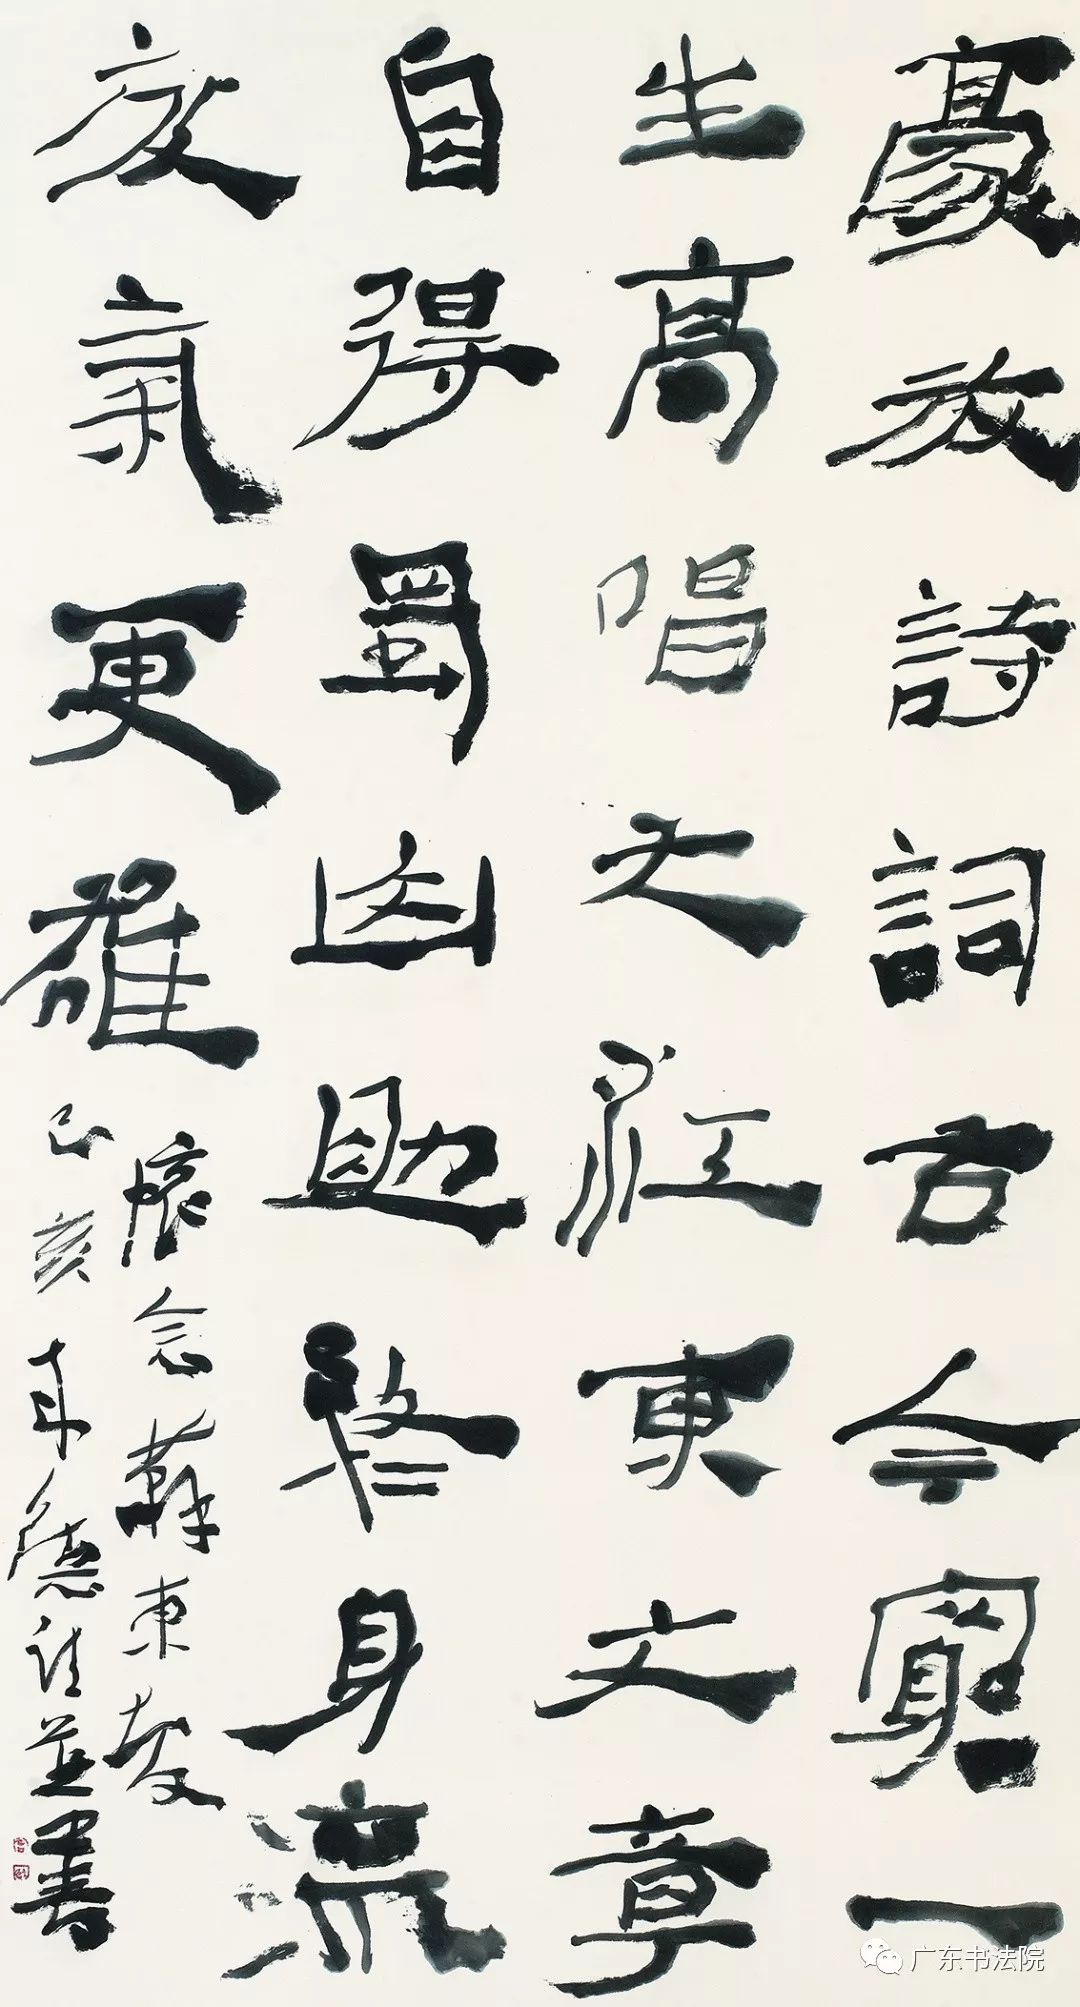 豪放詩詞古今窮一
生高唱大江東文章
自得蜀山助終身流
度氣更雄
懷念蘇東坡
己亥年德並書
广东书法院